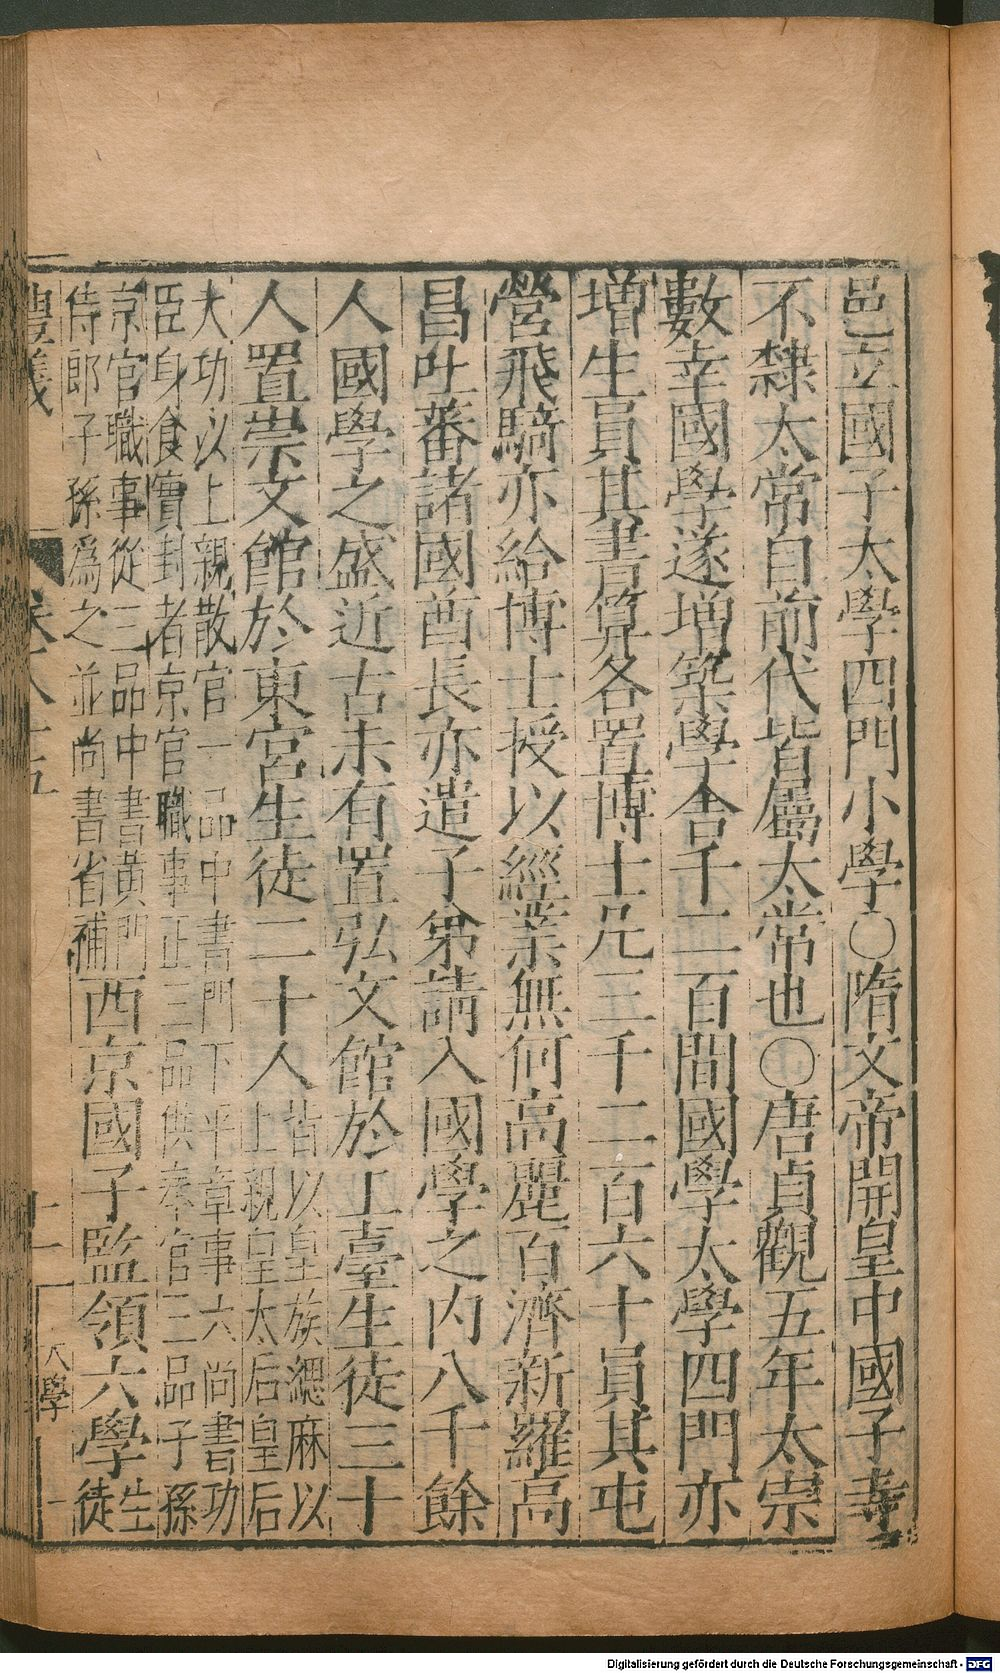 邑立國子太學四門小學○隋文帝開皇中國子寺
不隸太常自前代皆屬太常也○唐貞觀五年太宗
數幸國學遂增築學舍千二百間國學太學四門亦
增生員其書算各置博士凡三千二百六十員其屯
營飛騎亦給博士授以經業無何高麗百濟新羅高
昌吐蕃諸國酋長亦遣子弟請入國學之內八千餘
人國學之盛近古未有置弘文館於上臺生徒三十
人置崇文館於東宮生徒二十人皆以皇族緦麻以
上親皇太后皇后
大功以上親散官一品中書門下平章事六尚書功
臣身食實封者京官職事正三品供奉官三品子孫
京官職事從三品中書黃門
侍郎子孫為之並尚書省補西京國子監領六學生
徒
禮儀
卷
大學
Digitalisierung gefördert durch die Deutsche Forschungsgemeinschaft - DFG